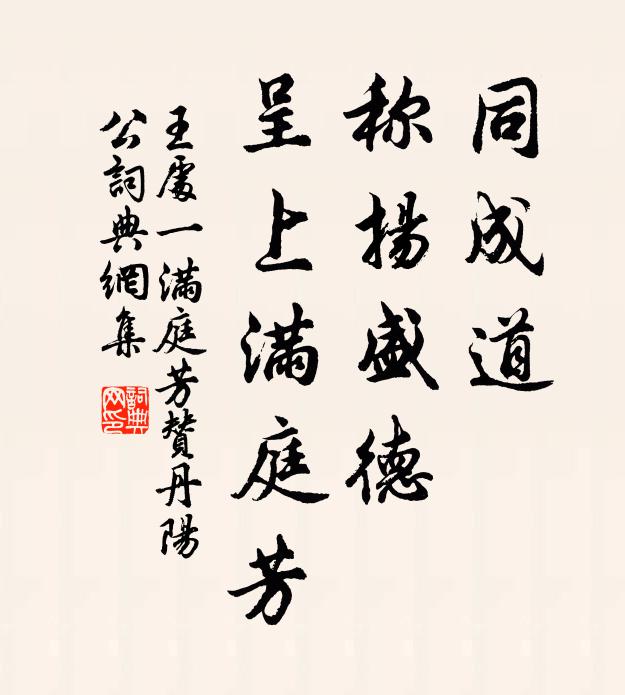 同成道
称揚盛德
呈上滿庭芳
王處一滿庭芳贊丹陽
公詞典網集
詞典
网印